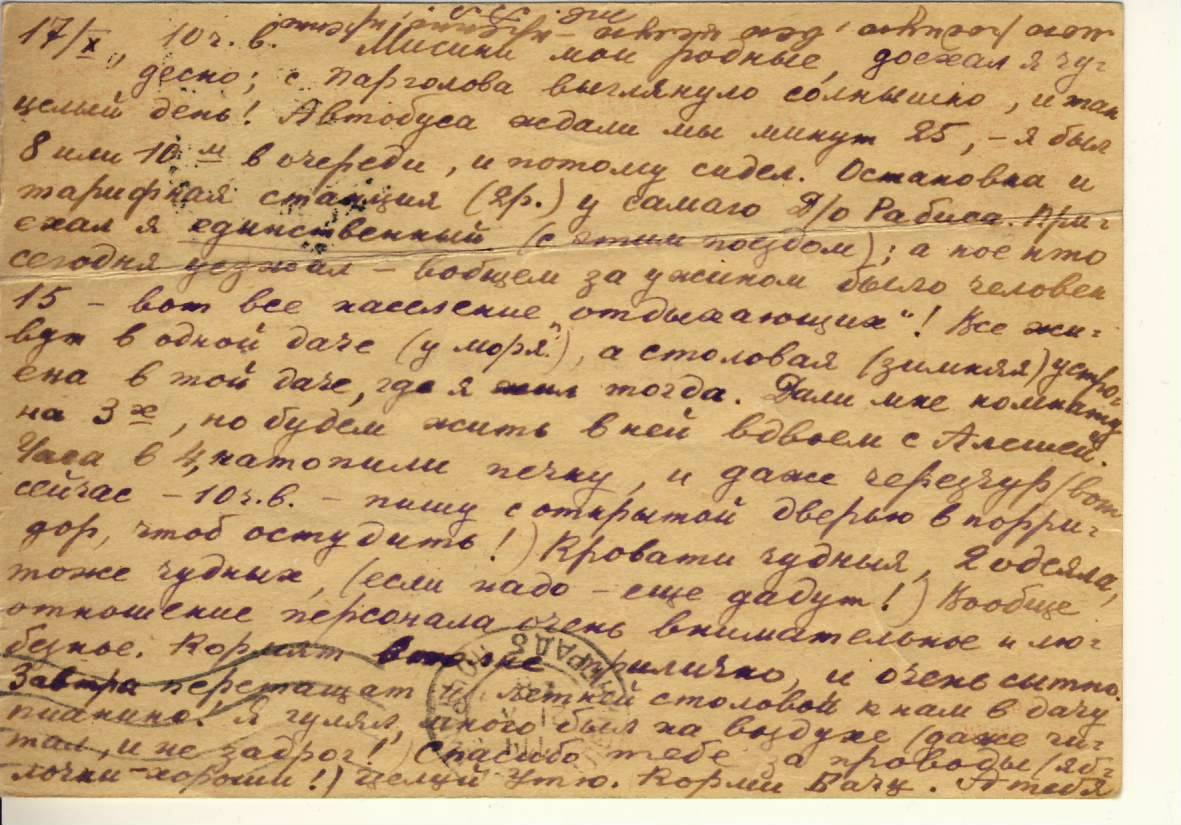 17/X, 10 ч. в. Мисики мои родные, доехал я чу-
десно; с Парголова выглянуло солнышко, и так
целый день! Автобуса ждали мы минут 25, – я был
8 или 10 м в очереди, и потому сидел. Остановка и
тарифная станция (2р.) у самаго Д/о Рабиса. При-
ехал я единственный (с этим поездом); а кое кто
сегодня уезжал – вобщем за ужином было человек
15 – вот все население "отдыхающих"! Все жи-
вут в одной даче (у моря"), а столовая (зимняя) устро-
ена в той даче, где я жил тогда. Дали мне комнату
на 3х, но будем жить в ней вдвоем с Алешей.
Часа в 4, натопили печку, и даже черезчур (вот
сейчас – 10 ч. в. – пишу с открытой дверью в корри-
дор, чтоб остудить!) Кровати чудныя, 2 одеяла,
тоже чудных, (если надо – еще дадут!) Вообще
отношение персонала очень внимательное и лю-
безное. Кормят вполне прилично, и очень сытно.
Завтра перетащат из летней столовой к нам в дачу
пианино! Я гулял, много был на воздухе (даже чи-
тал, и не задрог!) Спасибо тебе за проводы (яб-
лочки – хороши!) Целуй Утю. Корми Бачц. А тебя